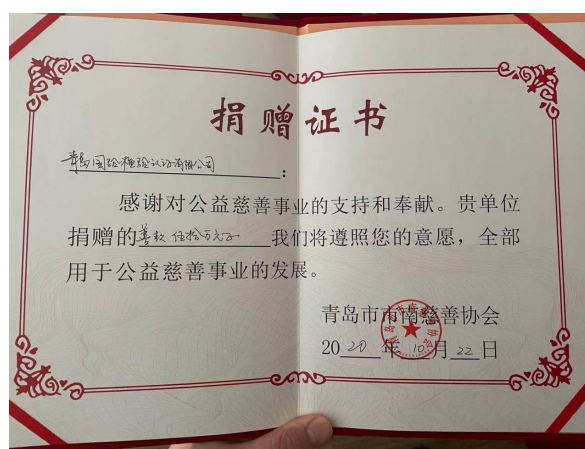 捐赠证书
青岛国验检验认证有限公司:
感谢对公益慈善事业的支持和奉献。贵单位
捐赠的善款 伍拾万元 我们将遵照您的意愿，全部
用于公益慈善事业的发展。
青岛市市南慈善协会
2020年10月22日